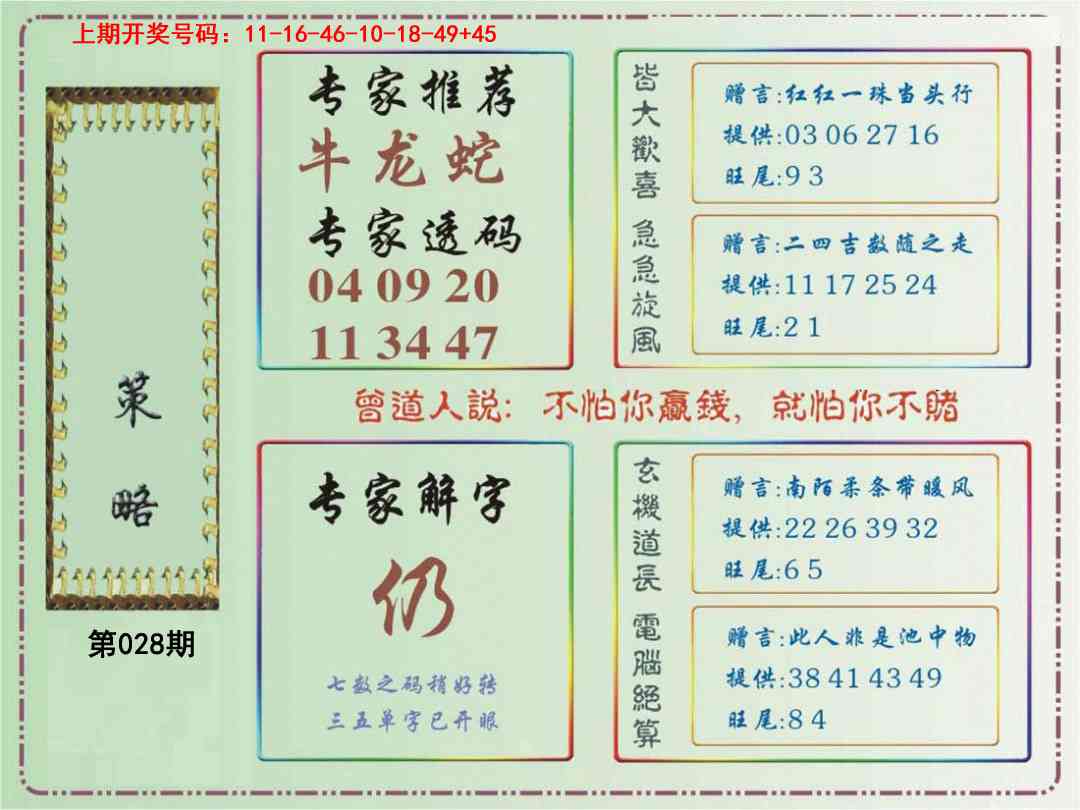 上期开奖号码：11-16-46-10-18-49+45
策略
第028期
专家推荐
牛龙蛇
专家透码
04 09 20
11 34 47
皆大歡喜
赠言:红红一珠当头行
提供:03 06 27 16
旺尾:9 3
急急旋風
赠言:二四吉数随之走
提供:11 17 25 24
旺尾:2 1
曾道人説：不怕你贏錢，就怕你不賭
专家解字
仍
七数之码稍好转
三五单字已开眼
玄機道長
赠言:南陌柔条带暖风
提供:22 26 39 32
旺尾:6 5
電腦絕算
赠言:此人非是池中物
提供:38 41 43 49
旺尾:8 4